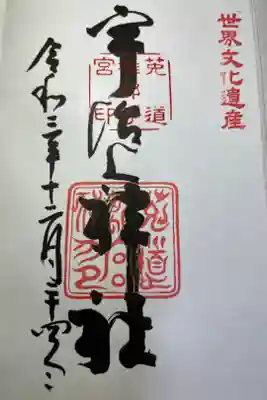 世界文化遺産
宇治上神社
菟道
宮印
令和三年十二月二十四日